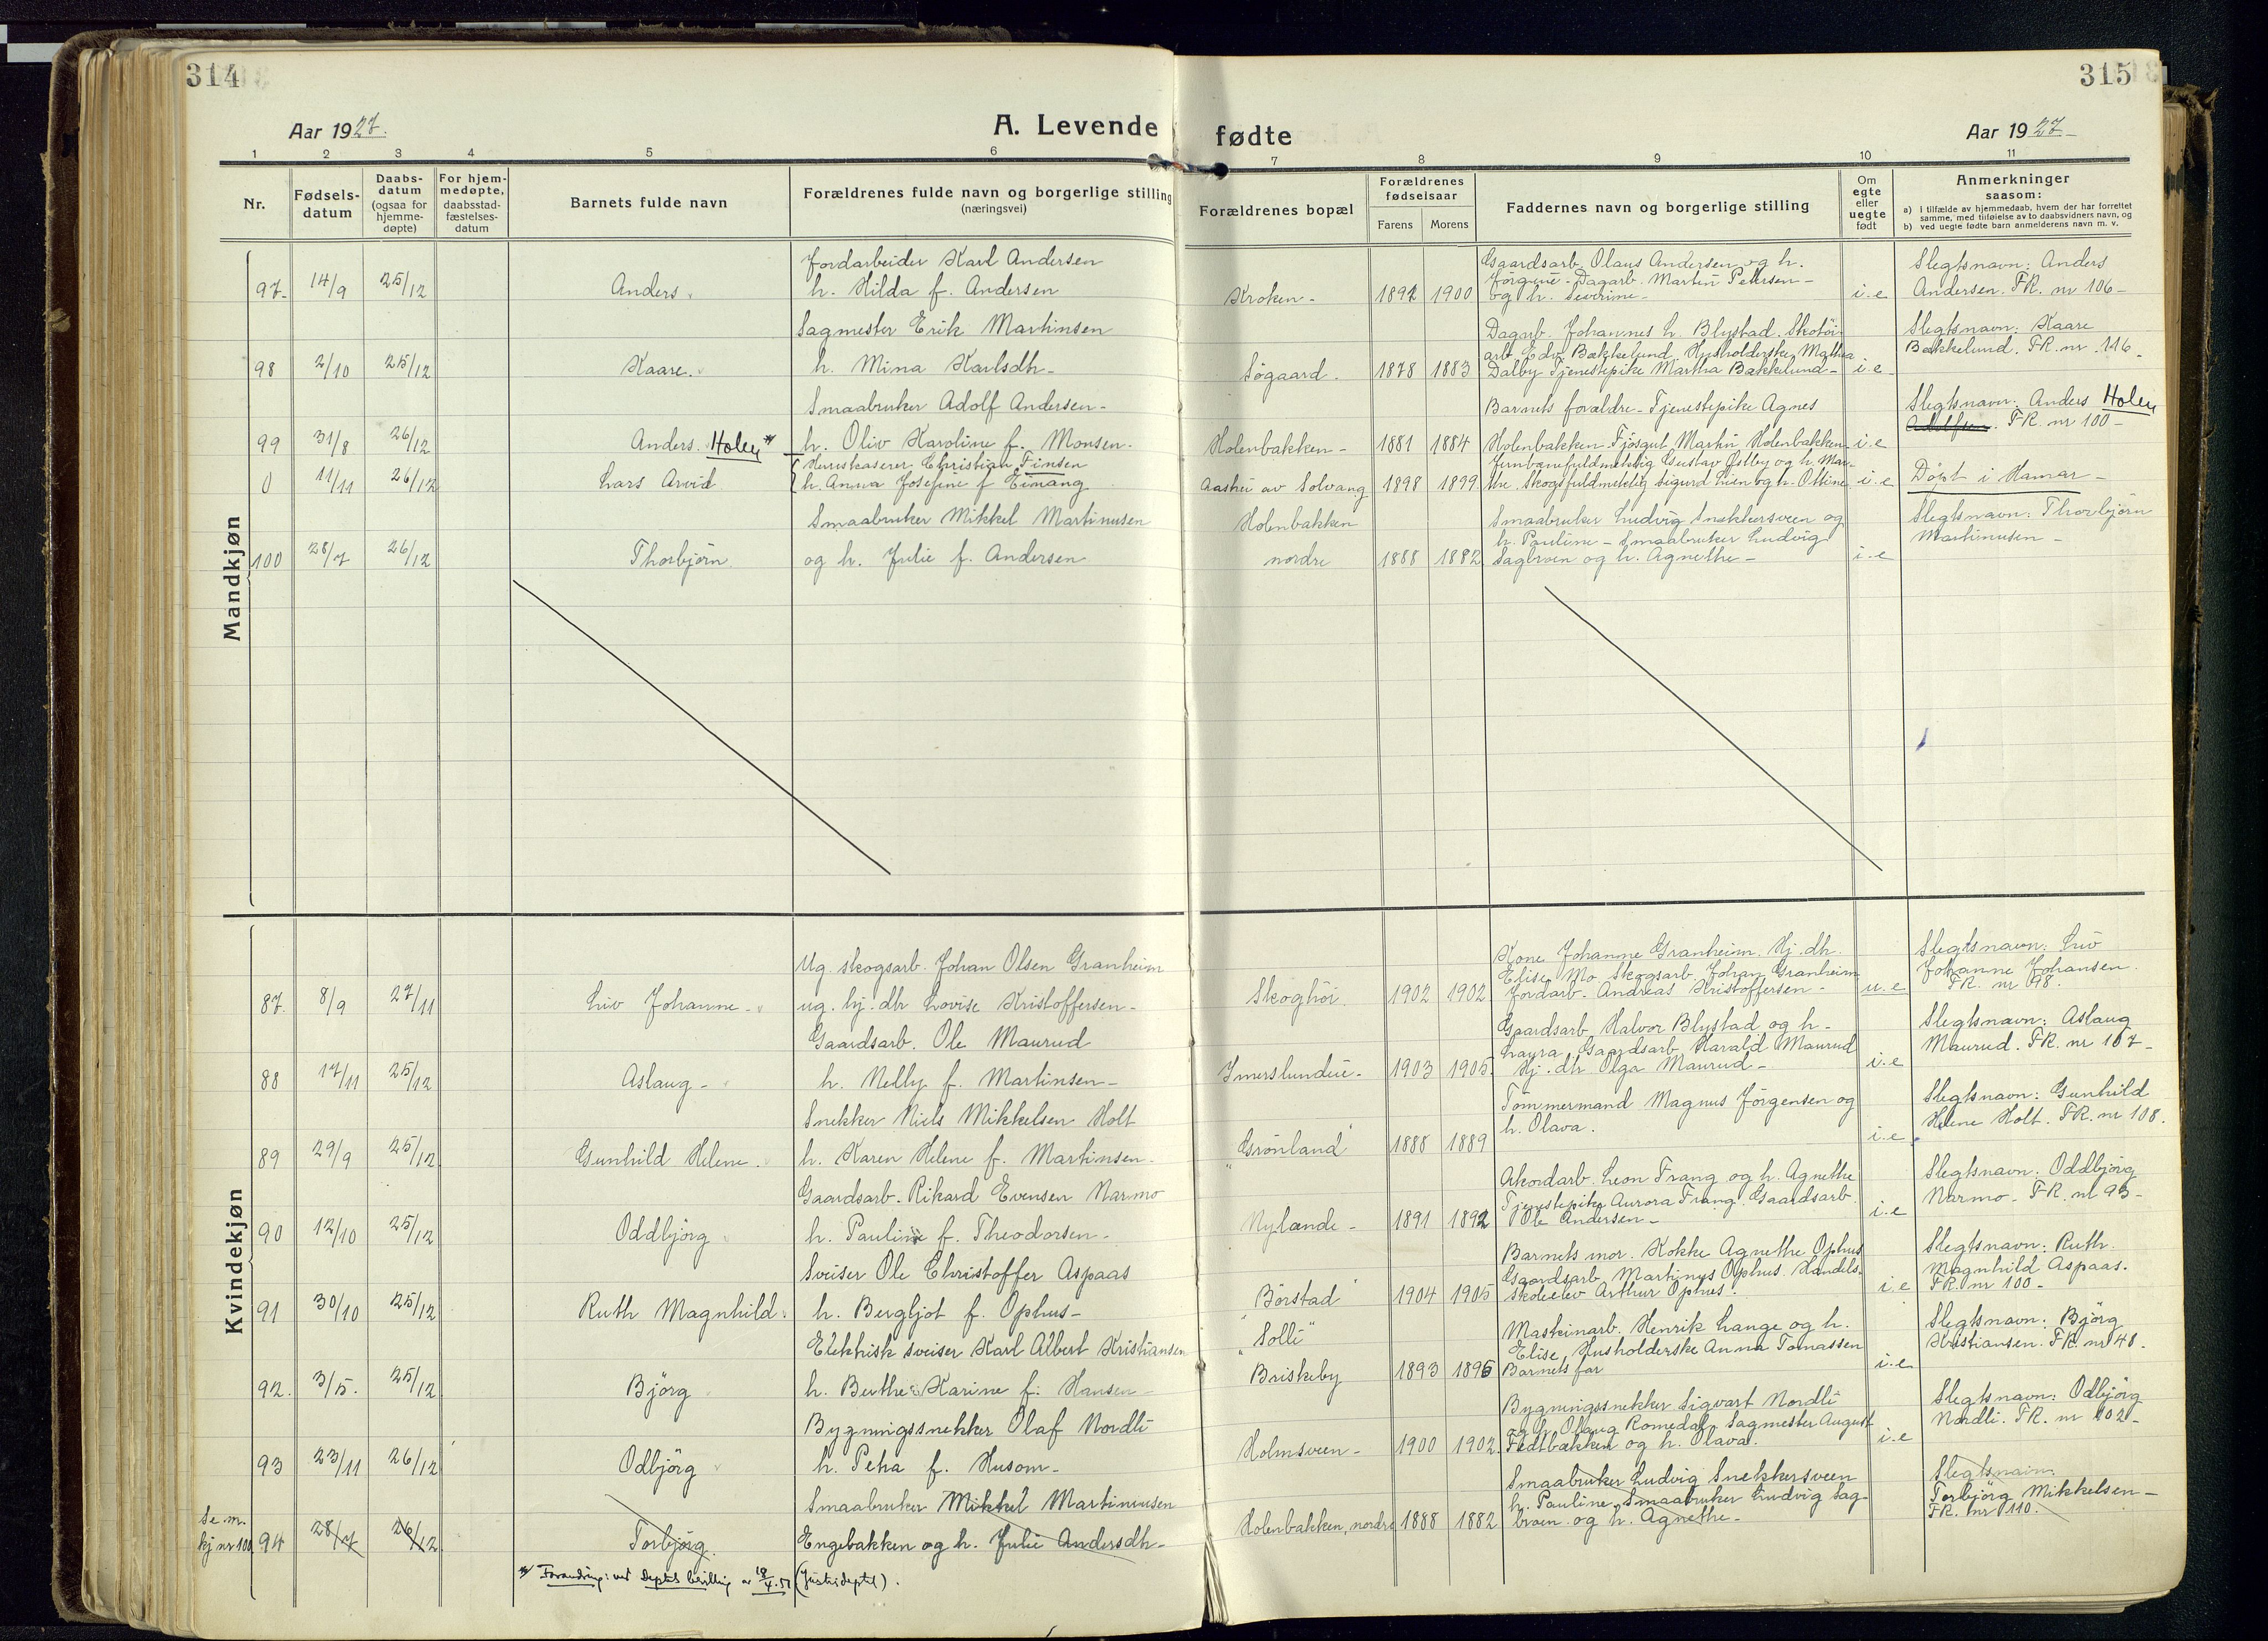 314
Aar 1927.
A. Levende
1 2 3 4 5 6
Nr.
Fødsels-
datum
Daabs-
datum
(ogsaa for
hjemme-
døpte)
For hjem-
medøpte,
daabsstad-
fæstelses-
datum
Barnets fulde navn
Forældrenes fulde navn og borgerlige stilling
(næringsvei)
Mandkjøn
Jordarbeider Karl Andersen
97. 14/9 25/12 Anders h. Hilda f. Andersen
Sagmester Erik Martinsen
98 2/10 25/12 Kaare. h. Mina Karlsdh-
Smaabruker Adolf Andersen-
99 31/8 26/12 Anders. Holen * h. Oliv Karoline f. Monsen.
Christian Finsen
0 11/11 26/12 Lars Arvid h. Anna Josefine f Eimang
Smaabruker Mikkel Martinusen
100 28/7 26/12 Thorbjörn og h. Julie f. Andersen
Kvindekjøn
Ug. skogsarb. Johan Olsen Granheim
87. 8/9 27/11 Liv Johanne- ug. hj. dtr Lovise Kristoffersen-
Gaardsarb. Ole Maurud
88 17/11 25/12 Aslaug- h. Nelly f. Martinsen-
Snekker Niels Mikkelsen Holt
89 29/9 25/12 Gunhild Helene. h. Karen Helene f. Martinsen-
Gaardsarb. Rikard Evensen Narmo
90 12/10 25/12 Oddbjörg h. Pauline f. Theodorsen-
Sveiser Ole Christoffer Aspaas
91 30/10 25/12 Ruth Magnhild h. Bergljot f. Ophus-
Elektrisk sveiser Karl Albert Kristiansen
92. 3/5. 25/12 Björg h. Berthe Karine f. Hansen-
Bygningssnekker Olaf Nordli
93 23/11 26/12 Odbjörg h. Petra f. Husom-
Smaabruker Mikkel Martinusen
Se m.
kj nr 100 94 28/7 26/12 Torbjörg. Engebakken og h. Julie Andersdh-
* Forandring: ved Deptets bevilling av (Justisdeptet).
315
fødte
Aar 1927
7 8 9 10 11
Forældrenes bopæl
Forældrenes
fødselsaar
Farens Morens
Faddernes navn og borgerlige stilling
Om
egte
eller
uegte
født
Anmerkninger
saasom:
a) i tilfælde av hjemmedaab, hvem der har forrettet
samme, med tilføielse av to daabsvidners navn, og
b) ved uegte fødte barn anmelderens navn m. v.
Gaardsarb. Olaus Andersen og h. Slegtsnavn: Anders
Jörgine - Dagarb. Martin Petersen-
Kroken- 1892 1900 og h. Severine- i.e Andersen. FR. nr 106-
Dagarb. Johannes h. Blystad. Skotöi- Slegtsnavn: Kaare
arb. Edv. Bækkelund. Husholderske Mathea Bækkelund. FR. nr. 116-
Søgaard. 1878 1883 Dalby Tjenestepike Martha Bækkelund- i.e-
Barnets forældre- Tjenestepike Agnes Slegtsnavn: Anders Holen
Holenbakken- 1881 1884 Holenbakken. Fjösgut Martin Holenbakken- i.e Adolfsen. FR. nr 100-
Jernbanefuldmektig Gustav Østby og h. Mar-
Aashei av Solvang 1898 1899 the. Skogsfuldmektig Sigurd Lien og h. Ottine i.e Döpt i Hamar-
Holenbakken Smaabruker Ludvig Snekkersveen og Slegtsnavn: Thorbjörn
h. Pauline - Smaabruker Ludvig Martinusen-
nordre 1888 1882 Sagbroen og h. Agnethe- i.e
Kone Johanne Granheim. Hj. dh. Slegtsnavn: Liv
Elise Mo Skogsarb. Johan Granheim Johanne Johansen.
Skoghöi. 1902 1902 Jordarb. Andreas Kristoffersen- u.e FR. nr 98.
Gaardsarb. Halvor Blystad og h- Slegtsnavn: Aslaug
Laura Gaardsarb. Harald Maurud Maurud. FR. nr 107-
Imerslundeie- 1903 1905. Hj. dh Olga Maurud- i.e
Tömmermand Magnus Jörgensen og Slegtsnavn: Gunhild
h. Olava. Helene Holt. FR. nr 108.
"Grönland" 1888 1889 i.e
Akordarb. Leon Frang og h. Agnethe Slegtsnavn: Oddbjörg
Tjenestepike Aurora Frang. Gaardsarb. Narmo- FR. nr 93-
Nylænde- 1891 1892 Ole Andersen- i.e
Barnets mor. Kokke Agnethe Ophus Slegtsnavn: Ruth.
Gaardsarb. Martinus Ophus. Handels- Magnhild Aspaas.
Börstad 1904 1905 skoleelev Arthur Ophus. i.e FR. nr 100-
"Solli" Maskinarb. Henrik Lange og h. Slegtsnavn: Björg
Elise Husholderske Anna Tomassen Kristiansen. FR. nr 48.
Briskeby 1893 1896 Barnets far i.e
Bygningssnekker Sigvart Nordli Slegtsnavn: Odbjörg
og h. Olaug Romedal. Sagmester August Nordli. FR. nr 102-
Holmsveen- 1900 1902. Fedtbækken og h. Olava. i.e
Smaabruker Ludvig Snekkersveen Slegtsnavn:
h. Pauline. Smaabruker Ludvig Sag- Torbjörg Mikkelsen-
Holenbakken, nordre 1888 1882 broen og h. Agnethe- FR. nr 110.